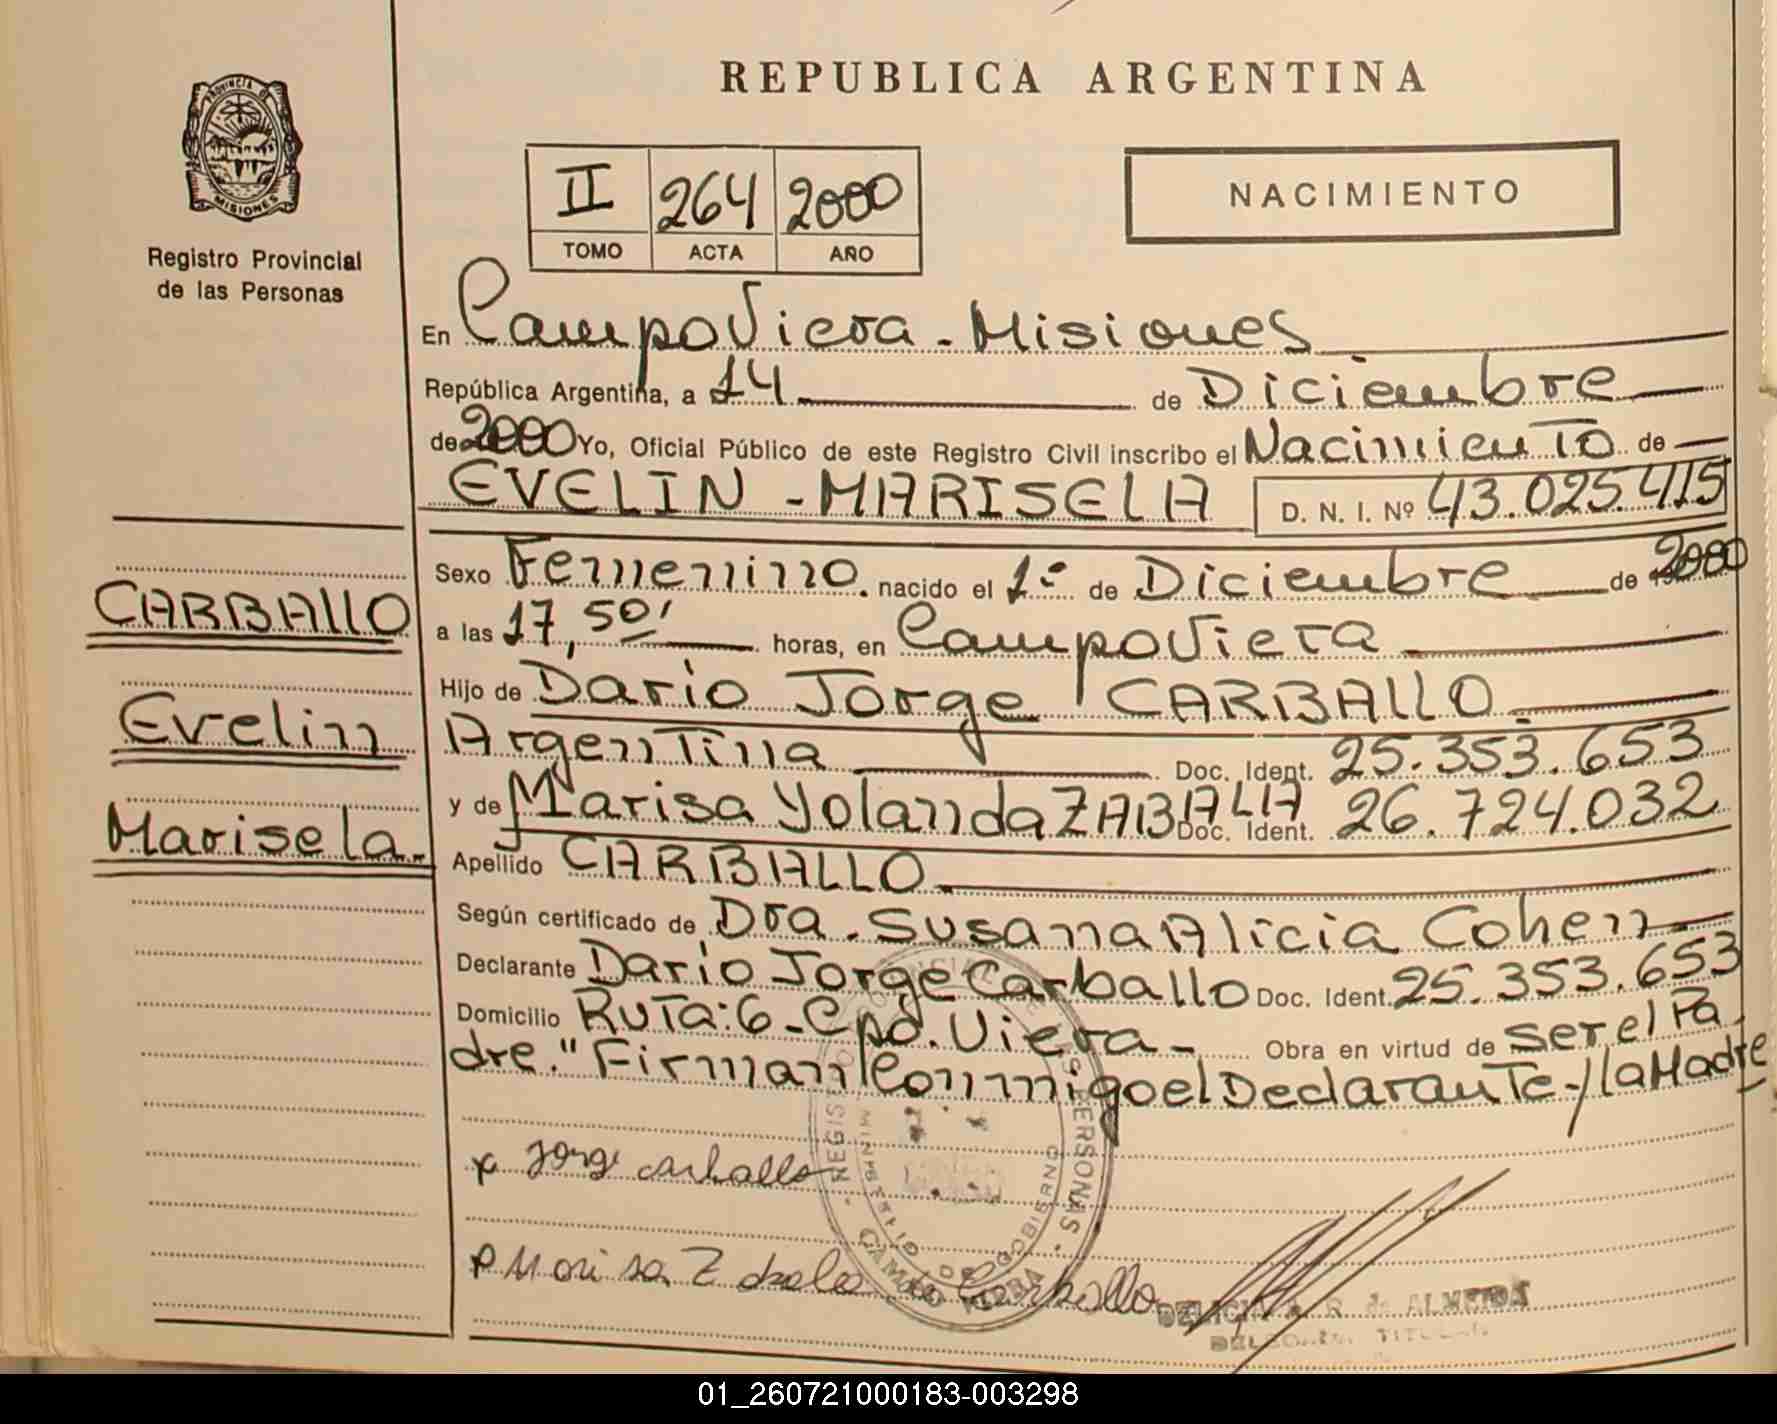 REPUBLICA ARGENTINA
PROVINCIA DE
MISIONES
Registro Provincial
de las Personas
II 264 2000
TOMO ACTA AÑO
NACIMIENTO
En Campo Viera - Misiones
República Argentina, a 14 de Diciembre
de 2000 Yo, Oficial Público de este Registro Civil inscribo el Nacimiento de
EVELIN - MARISELA D. N. I. Nº 43.025.415
Sexo Femenino. nacido el 1º de Diciembre de 2000
a las 17,50' horas, en Campo Viera
Hijo de Dario Jorge CARBALLO
Argentina Doc. Ident. 25.353.653
y de Marisa Yolanda ZABALA Doc. Ident. 26.724.032
Apellido CARBALLO
Según certificado de Dra. Susana Alicia Cohen
Declarante Dario Jorge Carballo Doc. Ident. 25.353.653
Domicilio Ruta: 6 - Cpo. Viera - Obra en virtud de ser el Pa
dre." Firman Conmigo el Declarante -/ la Madre
CARBALLO
Evelin
Marisela.
x Jorge carballo
Marisa Zabala de Carballo
REGISTRO PROVINCIAL DE LAS PERSONAS
MINISTERIO DE GOBIERNO
CAMPO VIERA
DELICIA A. R. de ALMEIDA
DELEGADA TITULAR
01_260721000183-003298